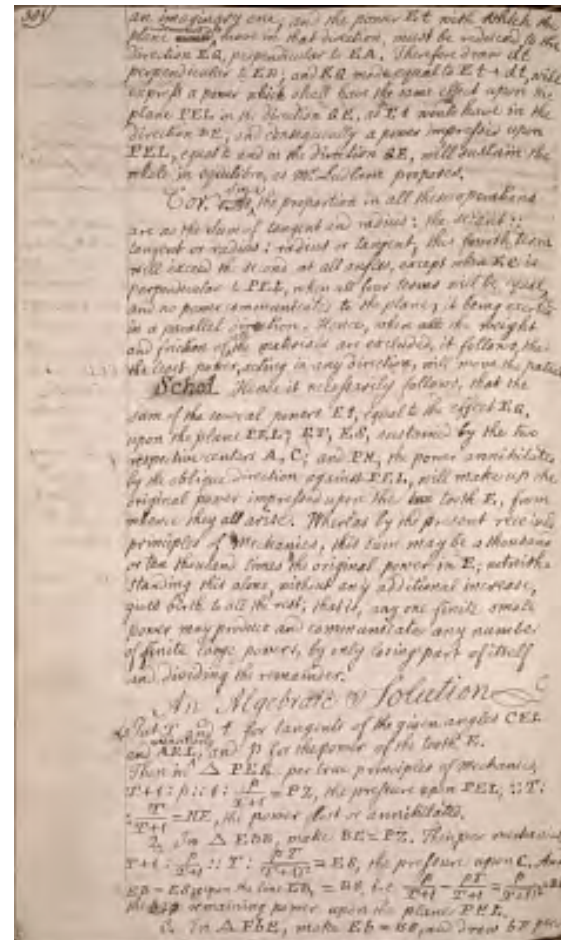 304
an imaginary one, and the power Et with which the
plane have in that direction, must be reduced to the
direction EQ, perpendicular to EA. Therefore draw dt
perpendicular to ED; and EQ made equal to Et + dt, will
express a power which shall have the same effect upon the
plane PEL in the direction QE, as Et would have in the
direction DE, and consequently a power impressed upon
PEL, equal to and in the direction QE, will sustain the
whole in equilibrio, as Mr. Ludlam proposes.
Cor. the proportion in all these operations
are as the sum of tangent and radius : the secant ::
tangent or radius : radius or tangent, this fourth term
will exceed the second at all angles, except when
perpendicular to PEL, when all four terms will be equal,
and no power communicated to the plane, it being exerted
in a parallel direction. Hence, when all the weight
and friction of the materials are excluded, it follows, that
the least power, acting in any direction, will move the
Schol. Hence it necessarily follows, that the
sum of the several powers Et, equal to the effect EQ,
upon the plane PEL; ES, sustained by the two
respective centers A, C; and PH, the power annihilated
by the oblique direction against PEL, will make up the
original power impressed upon the tooth E, from
whence they all arise. Whereas by the present received
principles of Mechanics, this sum may be a thousand
or ten thousand times the original power in E; notwith-
standing this alone, without any additional increase,
gives birth to all the rest; that is, any one finite small
power may produce and communicate any number
of finite large powers, by only losing part of itself
and dividing the remainder.
An Algebraic Solution
Put T and t for tangents of the given angles CEL
and AEL, and p for the power of the tooth E.
Then in △ per true principles of mechanics,
T+t : p :: t : = PZ, the pressure upon PEL, :: T :
= HE, the power lost or annihilated.
2. In △ EbB, make BE = PZ. Then per mechanics
T+t : :: T : = ES, the pressure upon C. And
upon the line
the remaining power upon the plane PEL.
In △ PbE, make Eb = and draw